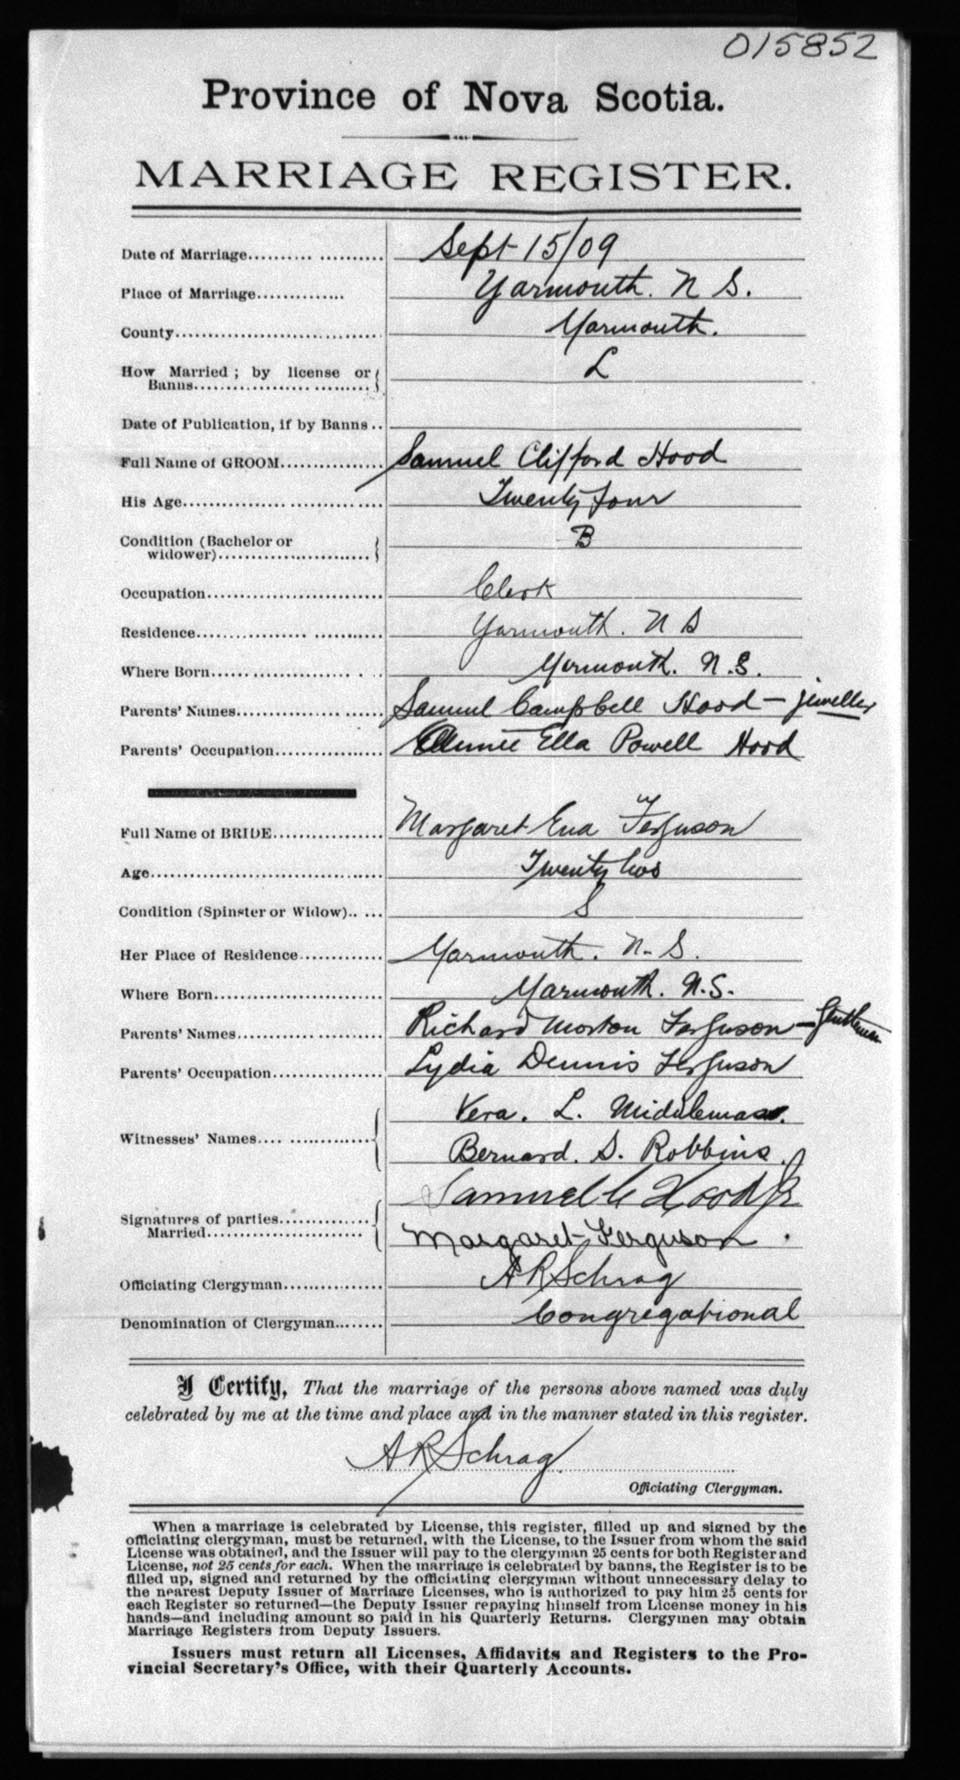 015852
Province of Nova Scotia.
MARRIAGE REGISTER.
Date of Marriage.......... .......... Sept 15/09
Place of Marriage.............. Yarmouth. N S.
County................................ Yarmouth.
How Married ; by license or L
Banns................................
Date of Publication, if by Banns ..
Full Name of GROOM................ Samuel Clifford Hood
His Age................................ Twenty four
Condition (Bachelor or B
widower)........................
Occupation........................... Clerk
Residence................ .......... Yarmouth. N S
Where Born....................... . . Yarmouth. N.S.
Parents' Names................ ..... Samuel Campbell Hood — jeweller
Parents' Occupation................ Annie Ella Powell Hood
Full Name of BRIDE................ Margaret Ena Ferguson
Age................................... Twenty two
Condition (Spinster or Widow).. ... S
Her Place of Residence............. Yarmouth. N. S.
Where Born........................ Yarmouth. N.S.
Parents' Names..................... Richard Morton Ferguson — gentleman
Parents' Occupation................ Lydia Dennis Ferguson
Vera. L. Middlemas.
Witnesses' Names.... ..............
Bernard. S. Robbins.
Samuel C Hood Jr
Signatures of parties..............
Married........................ Margaret Ferguson .
Officiating Clergyman............... A R Schrag
Denomination of Clergyman........ Congregational
I Certify, That the marriage of the persons above named was duly
celebrated by me at the time and place and in the manner stated in this register.
A R Schrag
Officiating Clergyman.
When a marriage is celebrated by License, this register, filled up and signed by the
officiating clergyman, must be returned, with the License, to the Issuer from whom the said
License was obtained, and the Issuer will pay to the clergyman 25 cents for both Register and
License, not 25 cents for each. When the marriage is celebrated by banns, the Register is to be
filled up, signed and returned by the officiating clergyman without unnecessary delay to
the nearest Deputy Issuer of Marriage Licenses, who is authorized to pay him 25 cents for
each Register so returned—the Deputy Issuer repaying himself from License money in his
hands—and including amount so paid in his Quarterly Returns. Clergymen may obtain
Marriage Registers from Deputy Issuers.
Issuers must return all Licenses, Affidavits and Registers to the Pro-
vincial Secretary's Office, with their Quarterly Accounts.